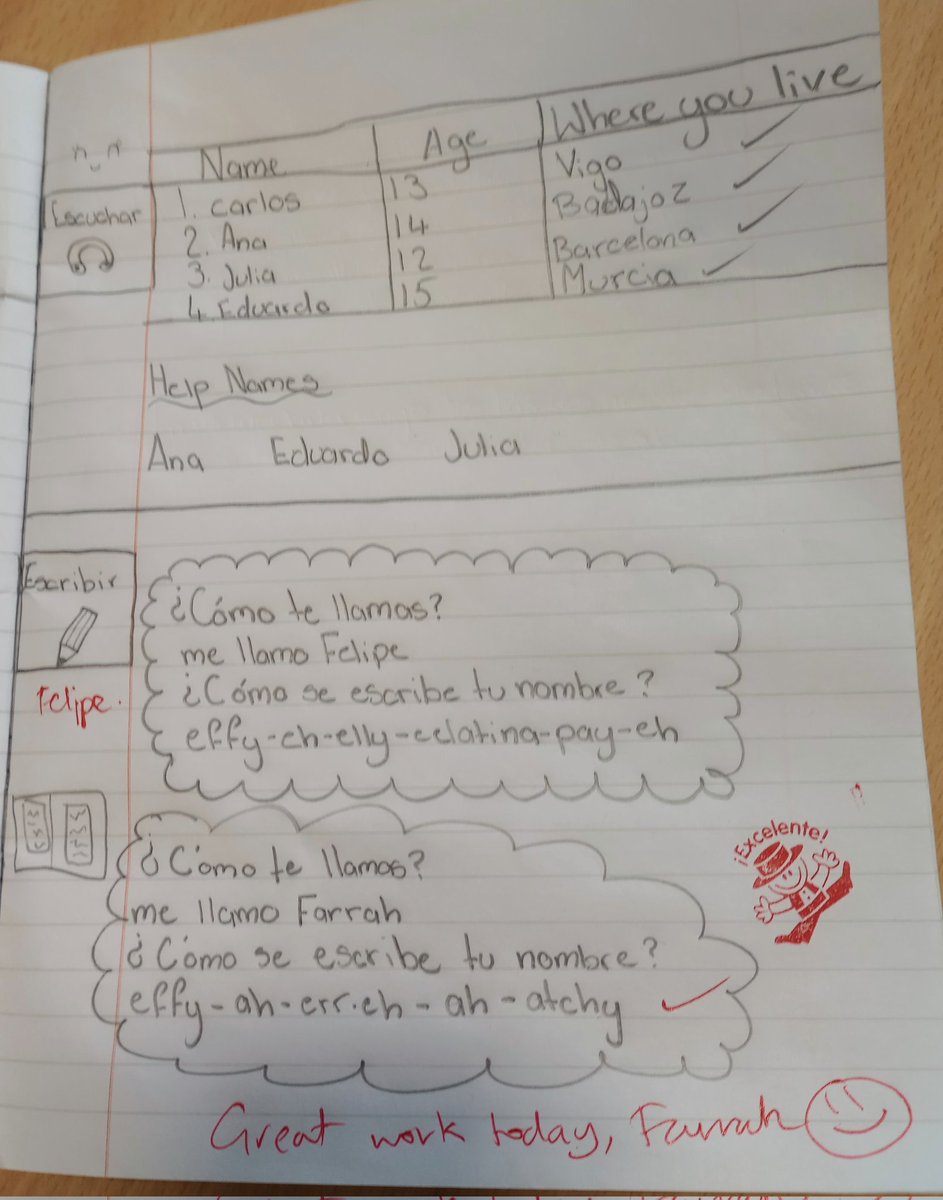 Name Age Where you live
Escuchar
1. carlos 13 Vigo
2. Ana 14 Badajoz
3. Julia 12 Barcelona
4. Eduardo 15 Murcia
Help Names
Ana Eduardo Julia
Escribir
¿Cómo te llamas?
me llamo Felipe
¿Cómo se escribe tu nombre?
effy-eh-elly-eelatina-pay-eh
Felipe.
¿Cómo te llamas?
me llamo Farrah
¿Cómo se escribe tu nombre?
effy-ah-err.eh-ah-atchy
¡Excelente!
Great work today, Farrah